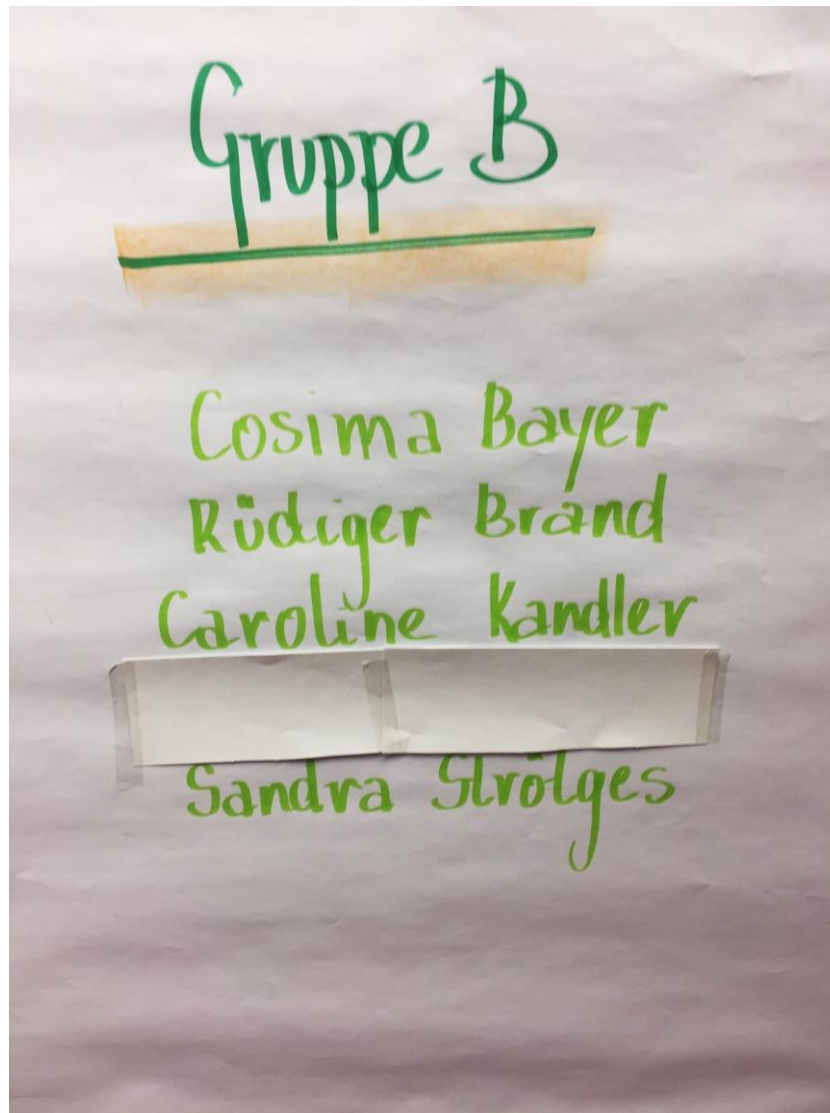 Gruppe B
Cosima Bayer
Rüdiger Brand
Caroline Kandler
Sandra Strötges